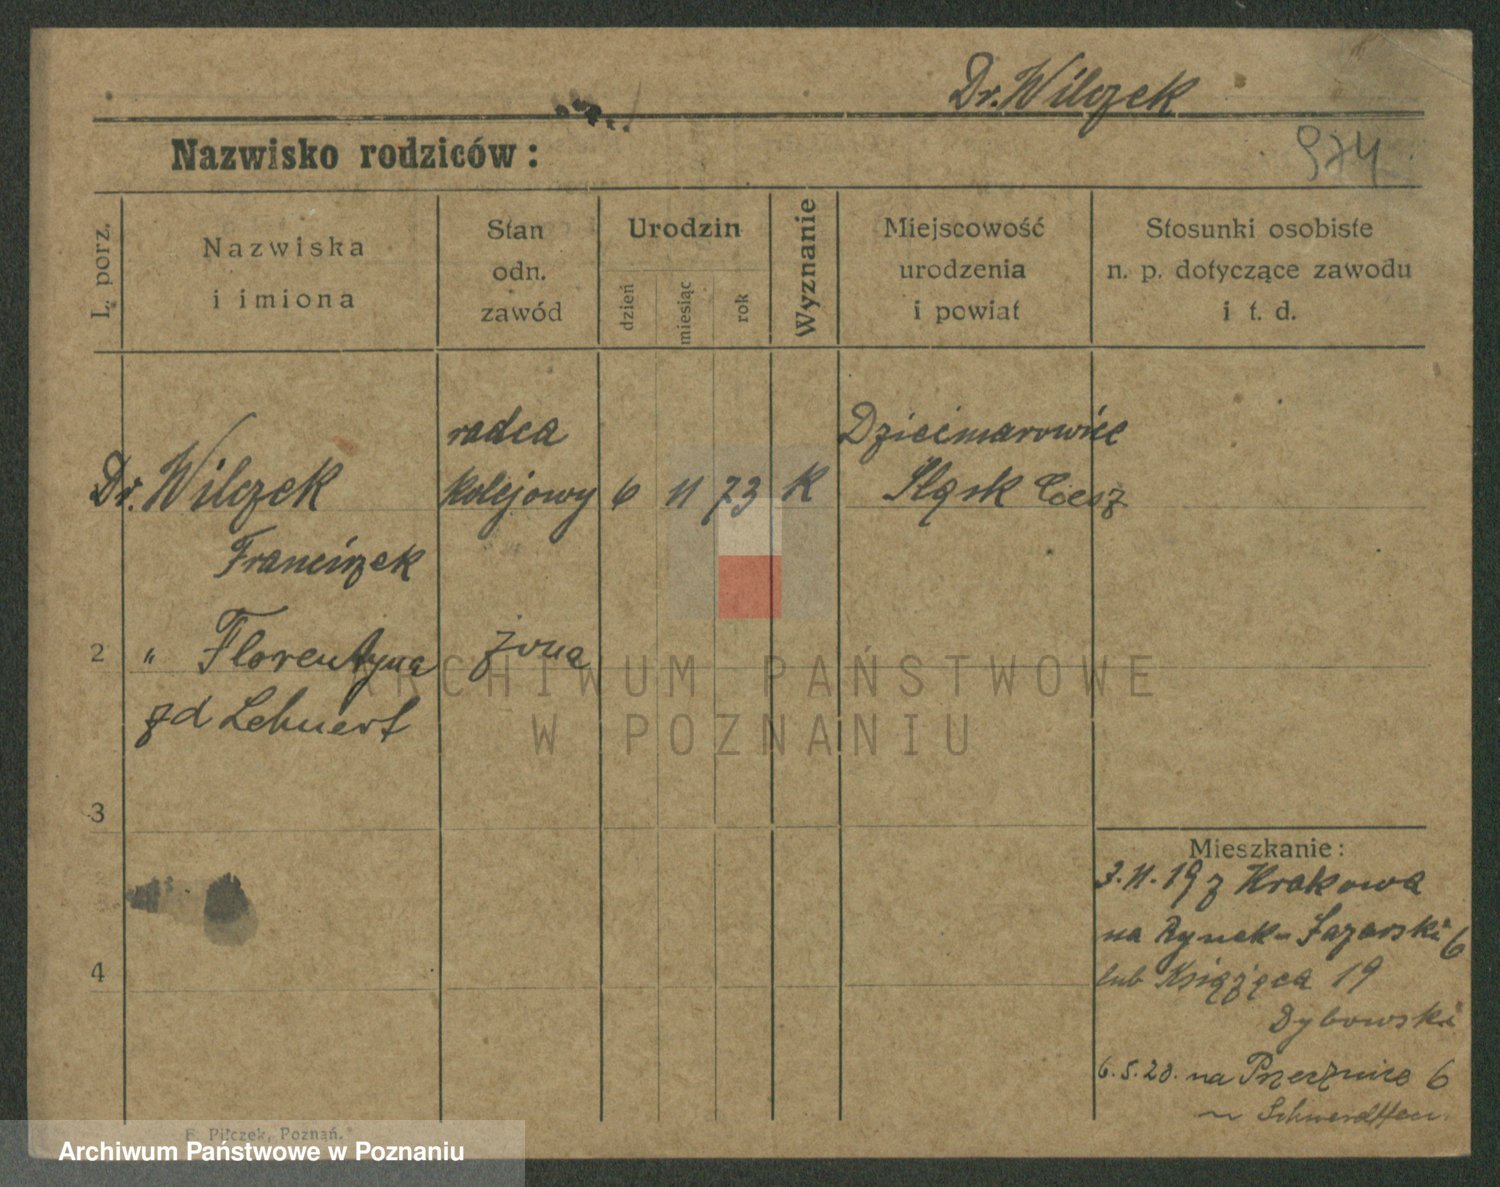 Dr. Wilczek
974
Nazwisko rodziców:
L. porz.
Nazwiska
i imiona
Stan
odn.
zawód
Urodzin
dzień
miesiąc
rok
Wyznanie
Miejscowość
urodzenia
i powiat
Stosunki osobiste
n. p. dotyczące zawodu
i t. d.
radca
Dziećmarowice
Dr. Wilczek
kolejowy
6
11
73
K
Śląsk Ciesz
Franciszek
2
" Florentyna
żona
zd Lehnert
3
4
Mieszkanie:
3.11.19 z Krakowa
na Rynek Łazarski 6
lub Książęca 19
Dybowski
6.5.20. na Przecznice 6
ARCHIWUM PAŃSTWOWE
W POZNANIU
F. Pilczek, Poznań.
Archiwum Państwowe w Poznaniu